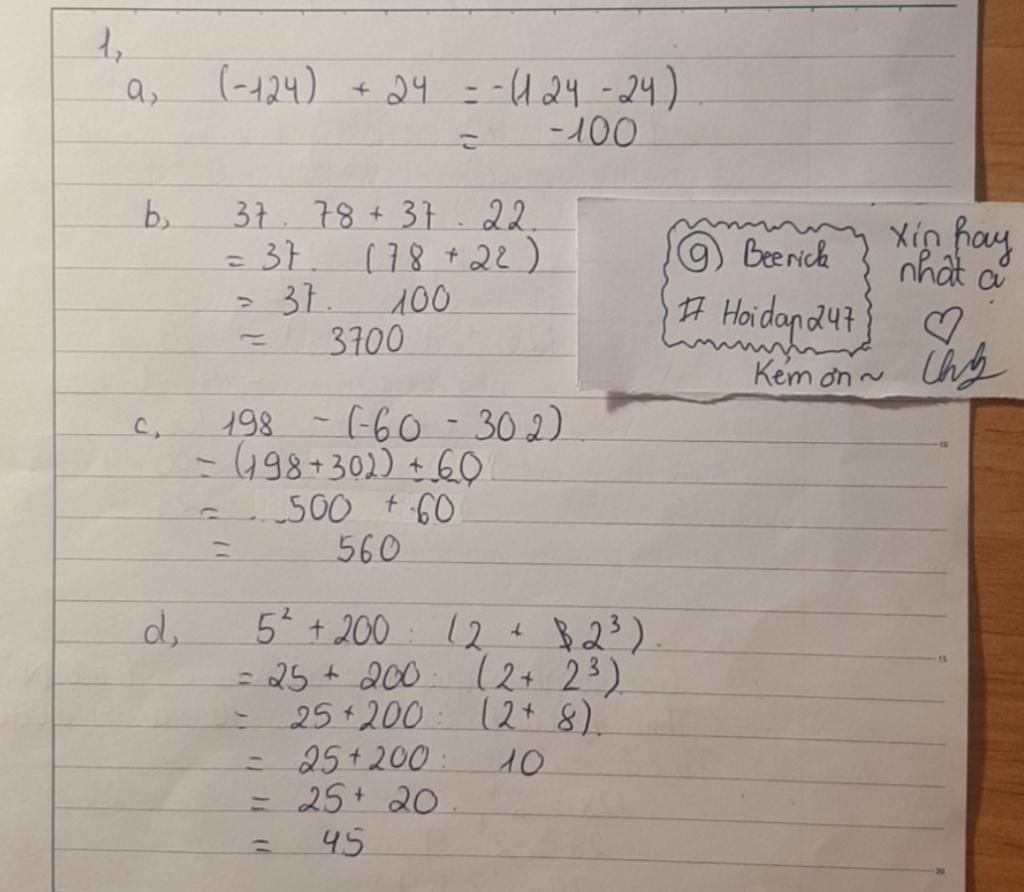 1,
a, (-124) + 24 = -(124 - 24)
= -100
b, 37 . 78 + 37 . 22
= 37 . (78 + 22)
= 37 . 100
= 3700
@ Beerick
# Hoidap247
xin hay
nhất ạ
♡
Kém ơn ~
c, 198 - (-60 - 302)
= (198 + 302) + 60
= 500 + 60
= 560
d, 5² + 200 : (2 + 2³)
= 25 + 200 : (2 + 2³)
= 25 + 200 : (2 + 8)
= 25 + 200 : 10
= 25 + 20
= 45
10
15
20